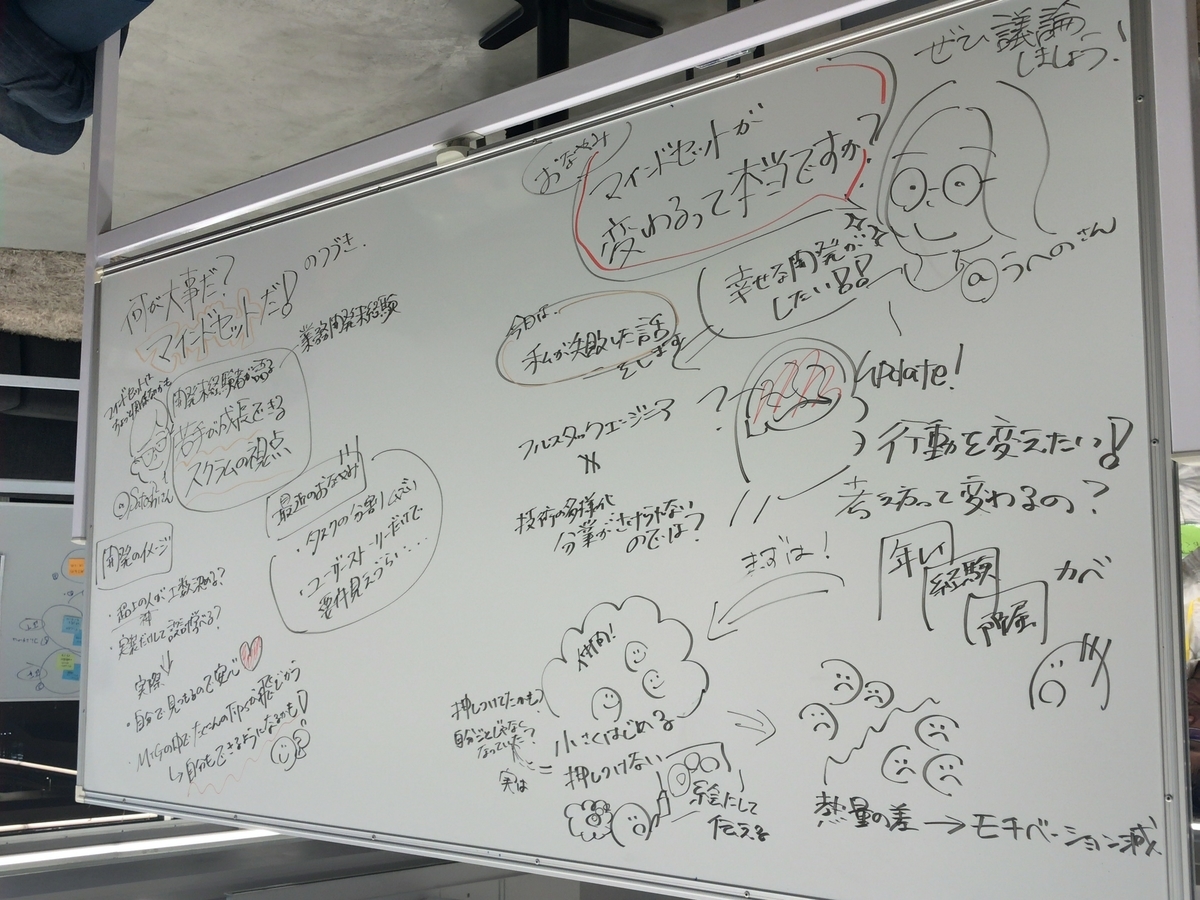 何が大事だ?
マインドセットだ! のつづき.
業務開発未経験
マインドセットは
開発未経験者が語る
若手が成長できる
スクラムの視点
@Satoshiさん
最近のお悩み
・タスクの分割
・ユーザーストーリーだけで
要件見えづらい・・・
開発のイメージ
・船上の人が工数決める?
・実装だけして
実際↓
・自分で見つもるので安心
・MTGの中でたくさんのTipsが飛びかう
↳自分もできるようになるかも!
ぜひ議論
しましょう!
おなやみ
マインドセットが
変わるって本当ですか?
@うへのさん
幸せな開発が
したい!!
今日は、
私が失敗した話
をします
フルスタックエンジニア
技術の多様化
分業がさけられない
のでは?
?
update!
行動を変えたい!
考え方って変わるの?
年れい
経験
所属
カベ
まずは!
仲間!
小さくはじめる
押しつけてたかも?
自分ごとじゃなく
なっていた?
実は
= 押しつけない
絵にして
伝える
熱量の差 → モチベーション減